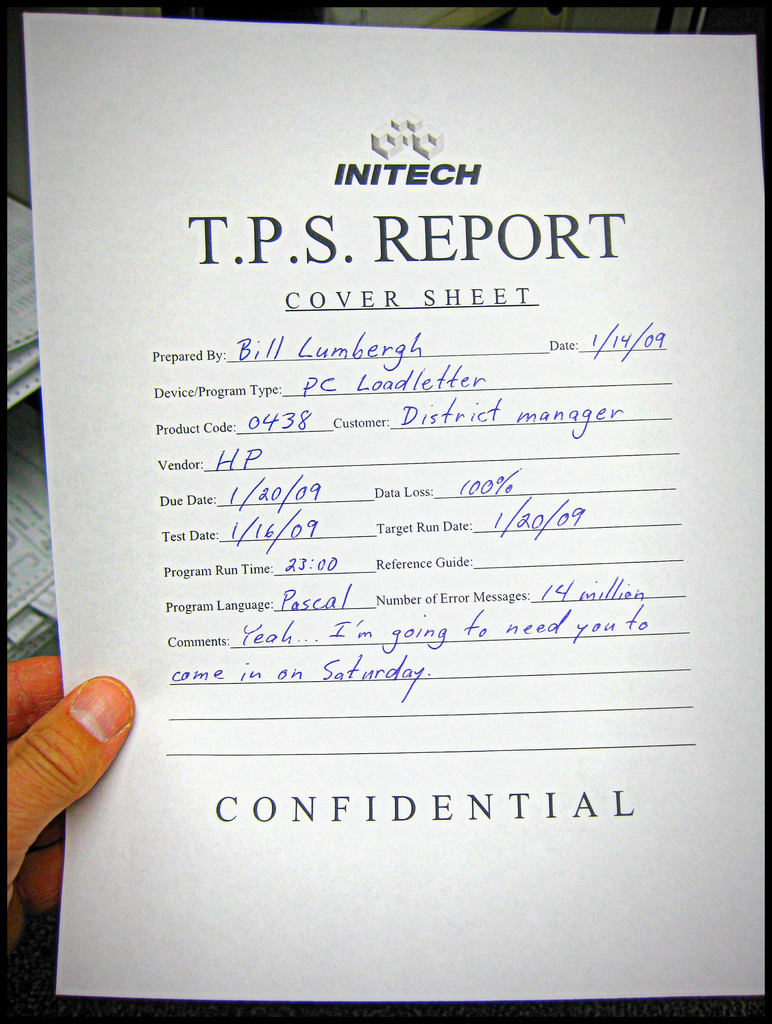 INITECH
T.P.S. REPORT
COVER SHEET
Prepared By: Bill Lumbergh Date: 1/14/09
Device/Program Type: PC Loadletter
Product Code: 0438 Customer: District manager
Vendor: HP
Due Date: 1/20/09 Data Loss: 100%
Test Date: 1/16/09 Target Run Date: 1/20/09
Program Run Time: 23:00 Reference Guide:
Program Language: Pascal Number of Error Messages: 14 million
Comments: Yeah... I'm going to need you to
come in on Saturday.
CONFIDENTIAL